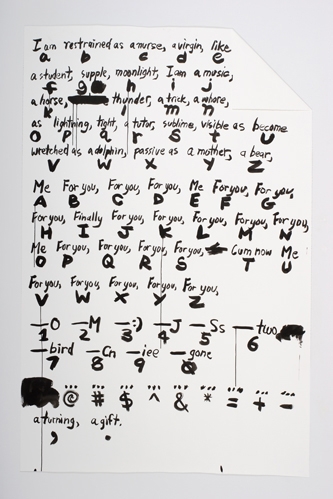 I am restrained as a nurse, a virgin, like
a b c d e
a student, supple, moonlight, I am a music,
f g h i j
a horse, thunder, a trick, a whore,
k l m n
as lightning, tight, a tutor, sublime, visible as become
O P q r S t U
wretched as a dolphin, passive as a mother, a bear,
V W X Y Z
Me For you, For you, For you, Me For you, For you,
A B C D E F G
For you, Finally For you, For you, For you, For you, For you,
H I J K L M N
Me For you, For you, For you, For you, Cum now Me
O P Q R S T U
For you, For you, For you, For you, For you,
V W X Y Z
—O —M —:) —J —Ss —two
1 2 3 4 5 6
—bird —Cn —iee —gone
7 8 9 0
... ... ... ... ... ... ... ... ...
@ # $ ^ & * = + -
a turning, a gift.
, .